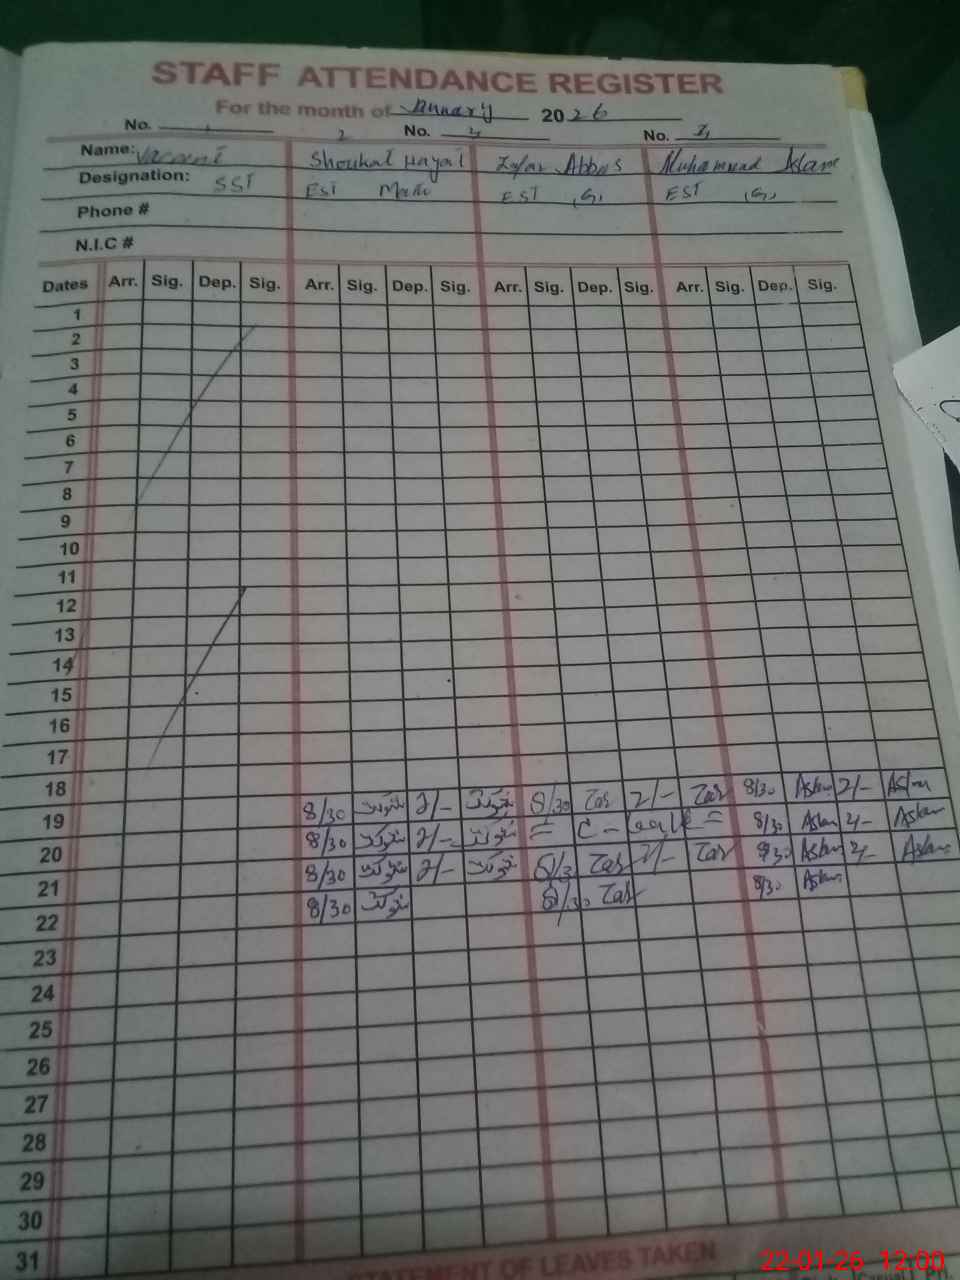 STAFF ATTENDANCE REGISTER
For the month of January 2026
No. 1 2 No. 3 No. 4
Name: Vacant Shoukat Hayat Zafar Abbas Muhammad Aslam
Designation: SST EST Math EST (G) EST (G)
Phone #
N.I.C #
Dates Arr. Sig. Dep. Sig. Arr. Sig. Dep. Sig. Arr. Sig. Dep. Sig. Arr. Sig. Dep. Sig.
1
2
3
4
5
6
7
8
9
10
11
12
13
14
15
16
17
18
19 8/30 شوکت 2/- شوکت 8/30 Zar 2/- Zar 8/30 Aslam 2/- Aslam
20 8/30 شوکت 2/- شوکت = C - Leave = 8/30 Aslam 2/- Aslam
21 8/30 شوکت 2/- شوکت 8/30 Zar 2/- Zar 8/30 Aslam 2/- Aslam
22 8/30 شوکت 8/30 Zar 8/30 Aslam
23
24
25
26
27
28
29
30
31
STATEMENT OF LEAVES TAKEN
22-01-26 12:00